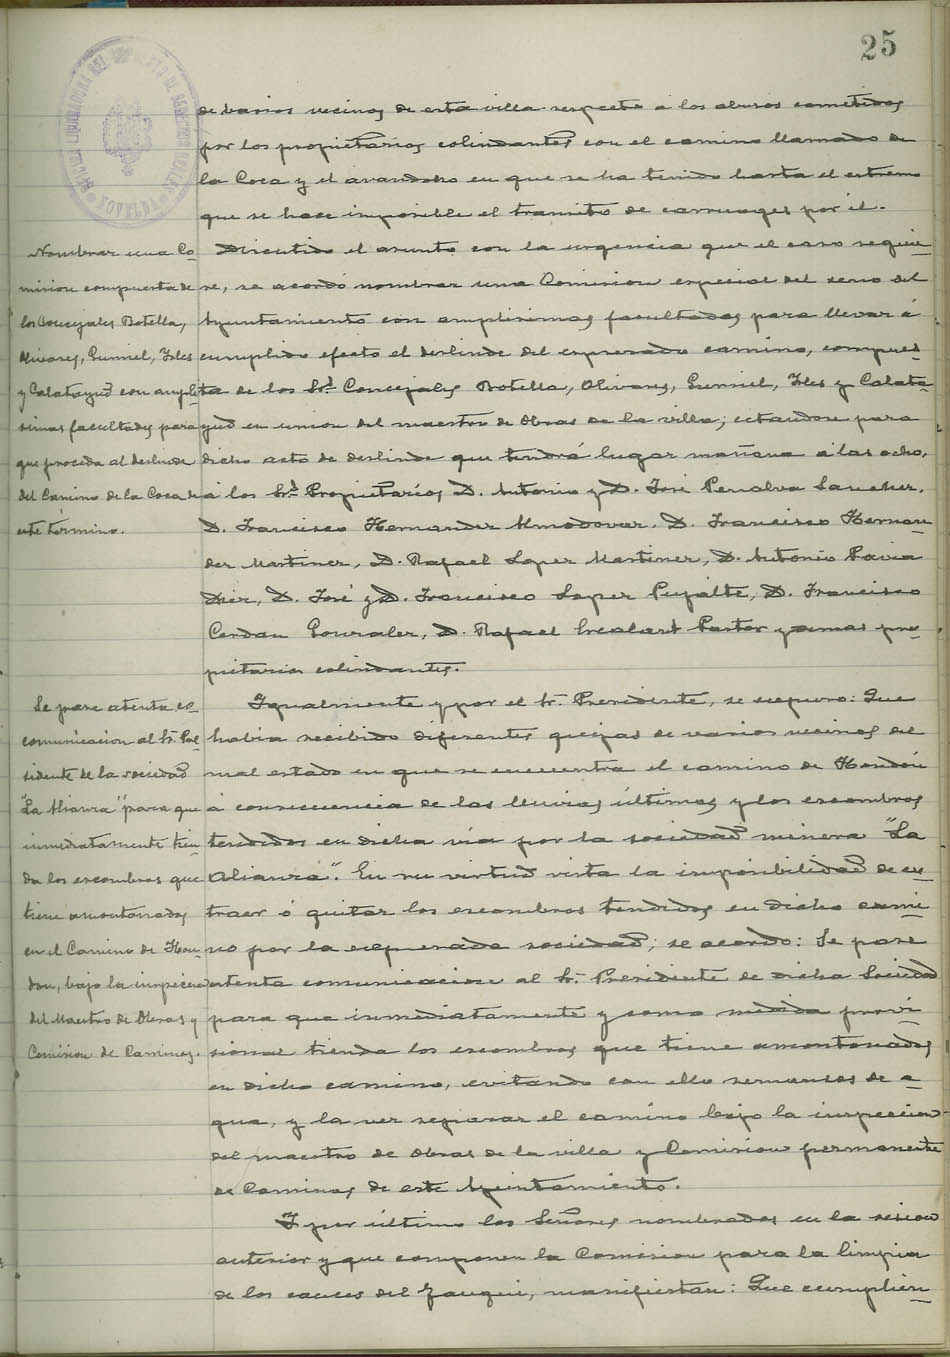 25
de varios vecinos de esta villa respecto á los abusos cometidos
por los propietarios colindantes con el camino llamado de
la Coca y el abandono en que se ha tenido hasta el extremo
que se hace imposible el transito de carruages por él.
Discutido el asunto con la urgencia que el caso requie-
re, se acordó nombrar una Comision especial del seno del
Ayuntamiento con amplisimas facultades para llevar á
cumplido efecto el deslinde del expresado camino, compues-
ta de los Srs. Concejales Botella, Olivares, Gumiel, Isles y Calata-
yud en union del maestro de Obras de la villa; citandose para
dicho acto de deslinde que tendrá lugar mañana á las ocho,
á los Srs. Propietarios D. Antonio y D. José Penalva Sanchez,
D. Francisco Hernandez Almodovar, D. Francisco Hernan-
dez Martinez, D. Rafael Lopez Martinez, D. Antonio Pavia
Diez, D. José y D. Francisco Lopez Pujalte, D. Francisco
Cerdan Gonzalez, D. Rafael Pastor y demas pro-
pietarios colindantes.
Igualmente y por el Sr. Presidente, se expuso: Que
habia recibido diferentes quejas de varios vecinos del
mal estado en que se encuentra el camino de Hondón
á consecuencia de las lluvias últimas y los escombros
tendidos en dicha via por la sociedad minera "La
Alianza". En su virtud vista la imposibilidad de ex-
traer ó quitar los escombros tendidos en dicho cami-
no por la expresada sociedad; se acordó: Se pase
atenta comunicacion al Sr. Presidente de dicha Sociedad
para que inmediatamente y como medida provi-
sional tienda los escombros que tiene amontonados
en dicho camino, evitando con ello remansos de a-
gua, y la vez reparar el camino bajo la inspeccion
del maestro de Obras de la villa y Comision permanente
de Caminos de este Ayuntamiento.
Y por último los Señores nombrados en la sesion
anterior y que componen la Comision para la limpia
de los cauces del Zanqui, manifiestan: Que cumplien-
Nombrar una Co-
mision compuesta de
los Concejales Botella,
Olivares, Gumiel, Isles
y Calatayud con ampli-
simas facultades para
que proceda al deslinde
del Camino de la Coca de
este término.
Se pase atenta co-
comunicacion al Sr. Pre-
sidente de la sociedad
"La Alianza" para que
inmediatamente tien-
da los escombros que
tiene amontonados
en el Camino de Hon-
don, bajo la inspeccion
del Maestro de Obras y
Comision de Caminos.